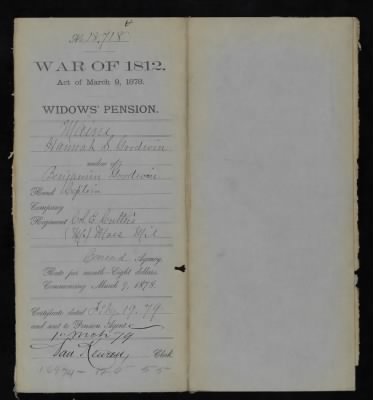 No 18,718
WAR OF 1812.
Act of March 9, 1878.
WIDOWS' PENSION.
Maine
Hannah S. Goodwin
widow of
Benjamin Goodwin
Rank Captain
Company
Regiment Col E Cutter's
Mass Mil
Concord Agency.
Rate per month—Eight dollars.
Commencing March 9, 1878.
Certificate dated Feby 19. 79
and sent to Pension Agent
1st Mch 79
Clerk.